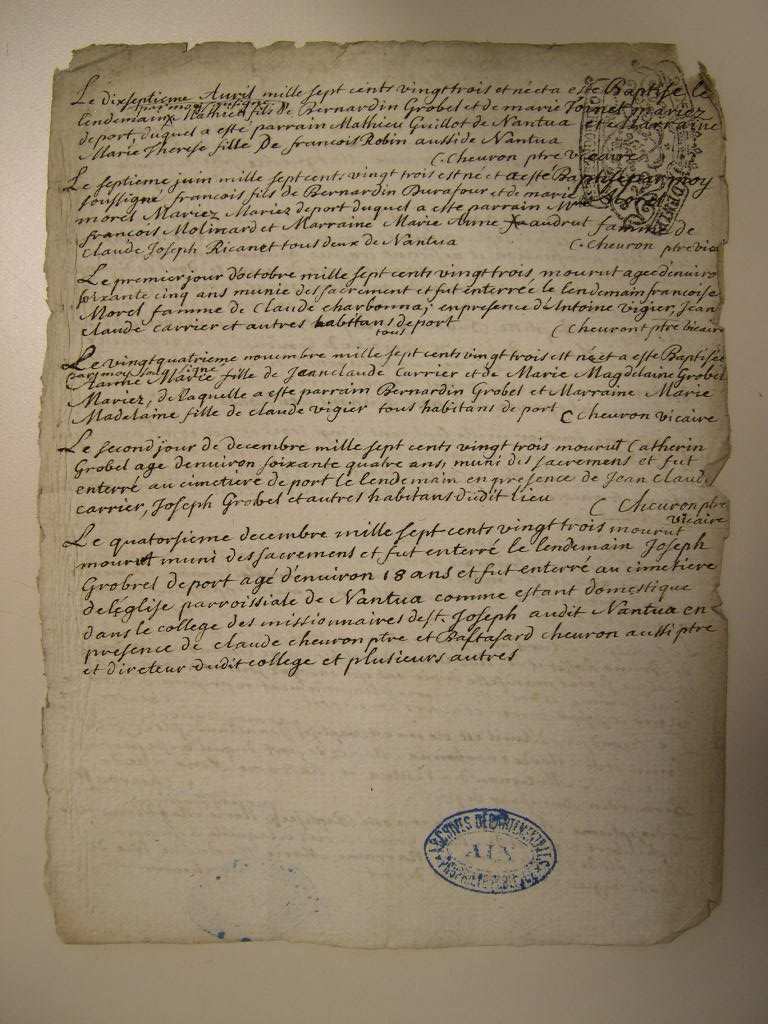 Le dixseptieme Avril mille sept cents vingt trois est né et a este Baptisé le
par moy soussigné
lendemain Mathieu fils de Bernardin Grobel et de marie Toinet mariez
de port, duquel a este parrain Mathieu Guillot de Nantua et Marraine
Marie Therese fille De francois Robin aussi de Nantua
C. Cheuron ptre vicaire
Le septieme juin mille sept cents vingt trois est né et a este Baptisé par moy
soussigne francois fils de Bernardin Durafour et de marie
morel Mariez Mariez de port duquel a este parrain
francois Molinard et Marraine Marie Anne famme de
Claude Joseph Ricanet tous deux de Nantua C. Cheuron ptre vicai
Le premier jour d'octobre mille sept cents vingt trois mourut agee denuiron
soixante cinq ans munie des sacrement et fut enterrée le lendemain francoise
Morel famme de Claude charbonna; en presence de Antoine vigier, Jean
claude carrier et autres habitans de port
tous
C Cheuront ptre vicaire
Le vingt quatrieme novembre mille sept cents vingt trois est né et a este Baptisée
par moy soussigne
Marie fille de Jean claude Carrier et de Marie Magdelaine Grobel
Mariez, de Laquelle a este parrain Bernardin Grobel et Marraine Marie
Madelaine fille de claude vigier tous habitans de port C Cheuron vicaire
Le second jour de decembre mille sept cents vingt trois mourut Catherin
Grobel age denuiron soixante quatre ans, muni des sacremens et fut
enterré au cimetiere de port le lendemain en presence de Jean Claude
carrier, Joseph Grobel et autres habitans dudit lieu
C Cheuron ptre
vicaire
Le quatorsieme decembre mille sept cents vingt trois mourut
mourut muni des sacremens et fut enterré le lendemain Joseph
Grobrel de port agé d'enuiron 18 ans et fut enterré au cimetiere
de l'Église parroissiale de Nantua comme estant domestique
dans le college des missionnaires de st. Joseph audit Nantua en
presence de claude cheuron ptre et Baltasard cheuron aussi ptre
et directeur dudit college et plusieurs autres
ARCHIVES DÉPARTEMENTALES
AIN
PROPRIÉTÉ PUBLIQUE